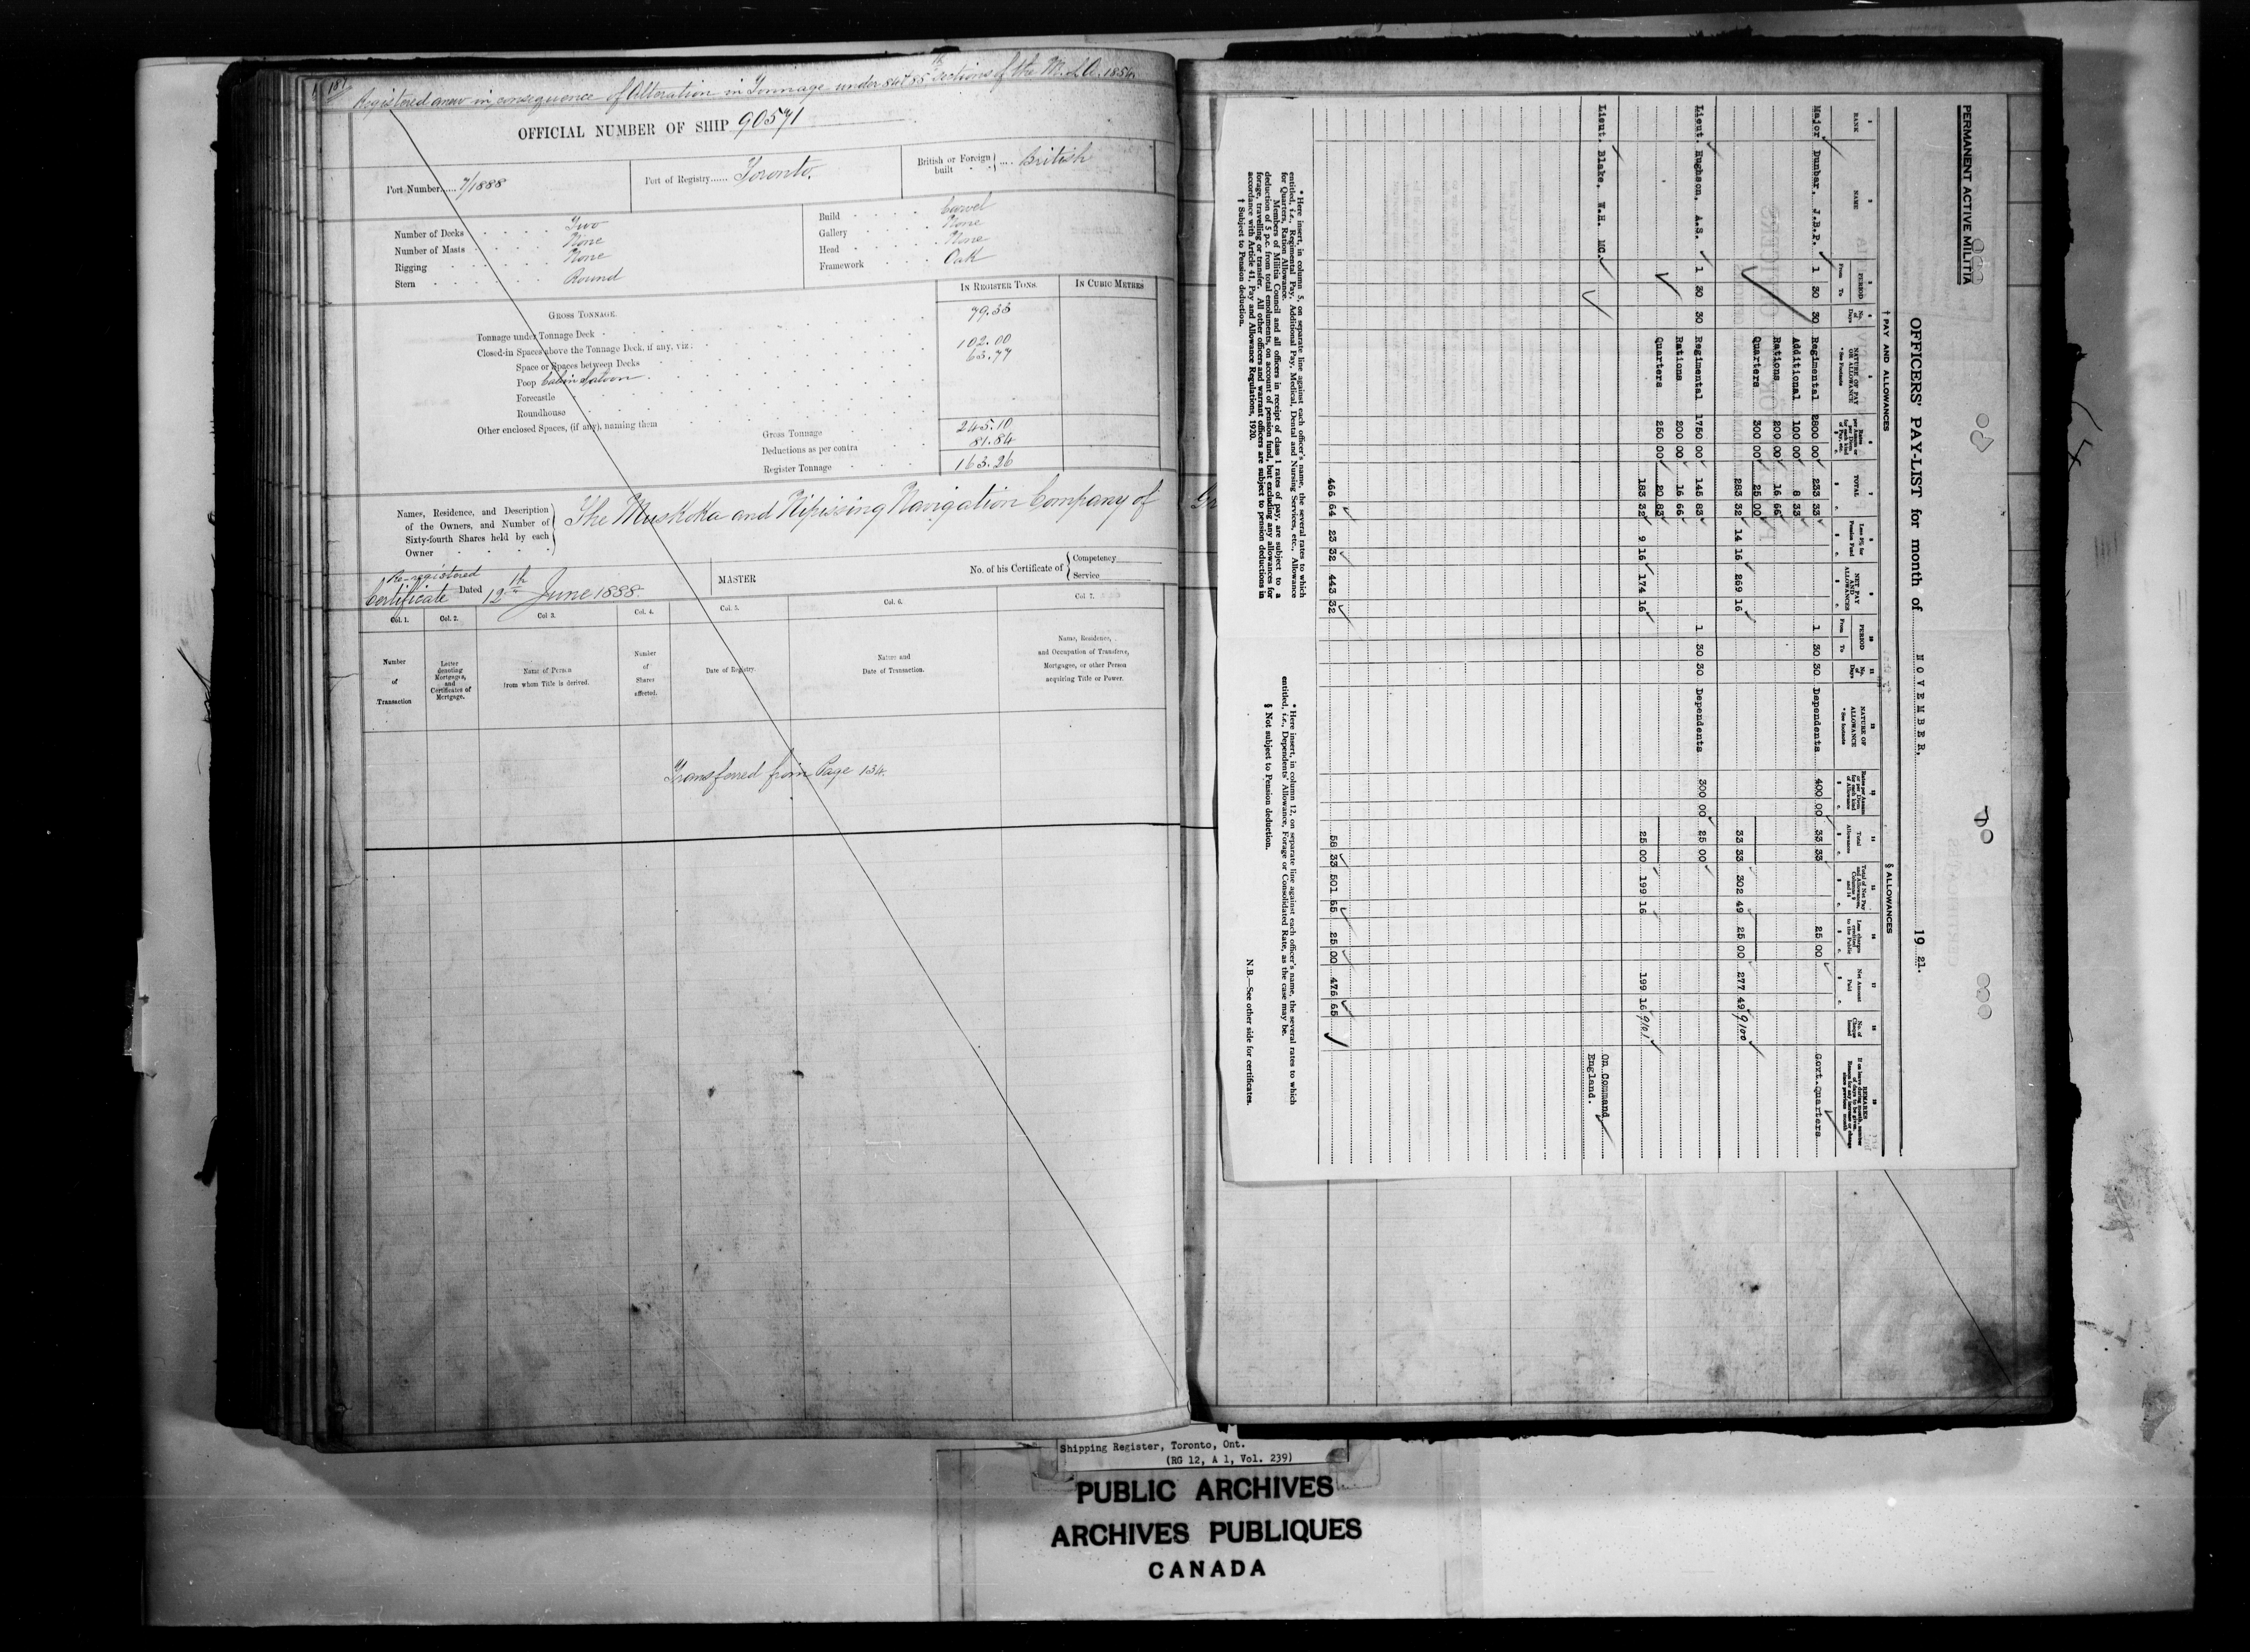 187
Registered anew in consequence of Alteration in Tonnage under 84 & 85th Sections of the M.S.A. 1854.
OFFICIAL NUMBER OF SHIP 90571
Port Number...... 7/1888
Port of Registry...... Toronto.
British or Foreign built .... British
Number of Decks Two
Number of Masts None
Rigging None
Stern Round
Build Carvel
Gallery None
Head None
Framework Oak
IN REGISTER TONS.
IN CUBIC METRES
GROSS TONNAGE.
Tonnage under Tonnage Deck 79.33
Closed-in Spaces above the Tonnage Deck, if any, viz:
Space or Spaces between Decks 102.00
Poop Cabin Saloon 63.77
Forecastle
Roundhouse
Other enclosed Spaces, (if any), naming them
Gross Tonnage 245.10
Deductions as per contra 81.84
Register Tonnage 163.26
Names, Residence, and Description
of the Owners, and Number of
Sixty-fourth Shares held by each
Owner
The Muskoka and Nipissing Navigation Company of
Re-registered
Certificate Dated 12th June 1888.
MASTER
No. of his Certificate of
Competency
Service
Col. 1.
Col. 2.
Col 3.
Col. 4.
Col. 5.
Col. 6.
Col 7.
Number of Transaction
Letter denoting Mortgages, and Certificates of Mortgage.
Name of Person from whom Title is derived.
Number of Shares affected.
Date of Registry.
Nature and Date of Transaction.
Name, Residence, and Occupation of Transferee, Mortgagee, or other Person acquiring Title or Power.
Transferred from Page 134.
PERMANENT ACTIVE MILITIA
OFFICERS' PAY-LIST for month of NOVEMBER, 1921.
† PAY AND ALLOWANCES
§ ALLOWANCES
RANK
NAME
PERIOD
From To
No. of Days
NATURE OF PAY OR ALLOWANCE
* See Footnote
TOTAL
Less 5% for Pension Fund
NET PAY AND ALLOWANCES
PERIOD
From To
No. of Days
NATURE OF ALLOWANCE
* See footnote
Total Allowances
Total of Net Pay and Allowances, Columns 9 and 14
Less charges credited to the Public
Net Amount Paid
No. of Cheque Issued
REMARKS
Major Dunbar, J.B.P. 1 30 30 Regimental 2800 00 233 33 1 30 30 Dependents 400 00 33 33 25 00 Govt.Quarters
Additional 100 00 8 33
Rations 200 00 16 66
Quarters 300 00 25 00
283 32 14 16 269 16 33 33 302 49 25 00 277 49 9100
Lieut. Hughson, A.S. 1 30 30 Regimental 1750 00 145 83 1 30 30 Dependents 300 00 25 00
Rations 200 00 16 66
Quarters 250 00 20 83
183 32 9 16 174 16 25 00 199 16 199 16 9101
Lieut. Blake, W.H. MC. On Command
England.
466 64 23 32 443 32 58 33 501 65 25 00 476 65
* Here insert, in column 5, on separate line against each officer's name, the several rates to which
entitled, i.e., Regimental Pay, Additional Pay, Medical, Dental and Nursing Services, etc., Allowance
for Quarters, Ration Allowance.
Members of Militia Council and all officers in receipt of class 1 rates of pay, are subject to a
deduction of 5 p.c. from total emoluments, on account of pension fund, but excluding any allowances for
forage, travelling or transfer. All other officers and warrant officers are subject to pension deductions in
accordance with Article 41, Pay and Allowance Regulations, 1920.
† Subject to Pension deduction.
* Here insert, in column 12, on separate line against each officer's name, the several rates to which
entitled, i.e., Dependents' Allowance, Forage or Consolidated Rate, as the case may be.
§ Not subject to Pension deduction.
N.B.—See other side for certificates.
Shipping Register, Toronto, Ont.
(RG 12, A 1, Vol. 239)
PUBLIC ARCHIVES
ARCHIVES PUBLIQUES
CANADA